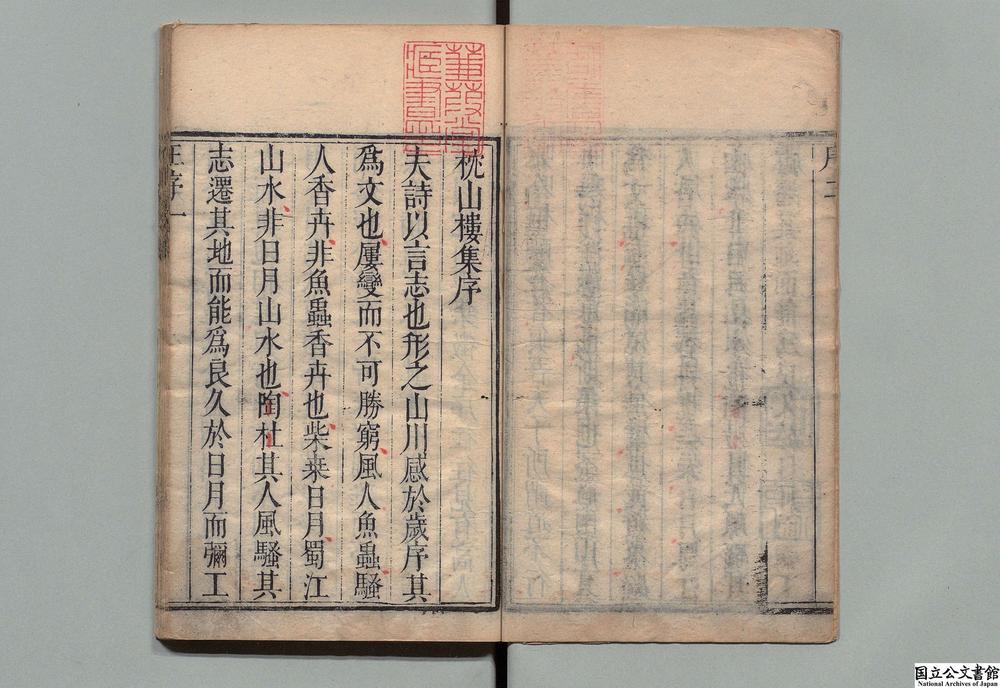 枕山樓集序
夫詩以言志也形之山川感於歲序其
爲文也屢變而不可勝窮風人魚蟲騷
人香卉非魚蟲香卉也柴桒日月蜀江
山水非日月山水也陶杜其人風騷其
志遷其地而能爲良久於日月而彌工
王序一
蒹葭堂
藏書印
序二
国立公文書館
National Archives of Japan